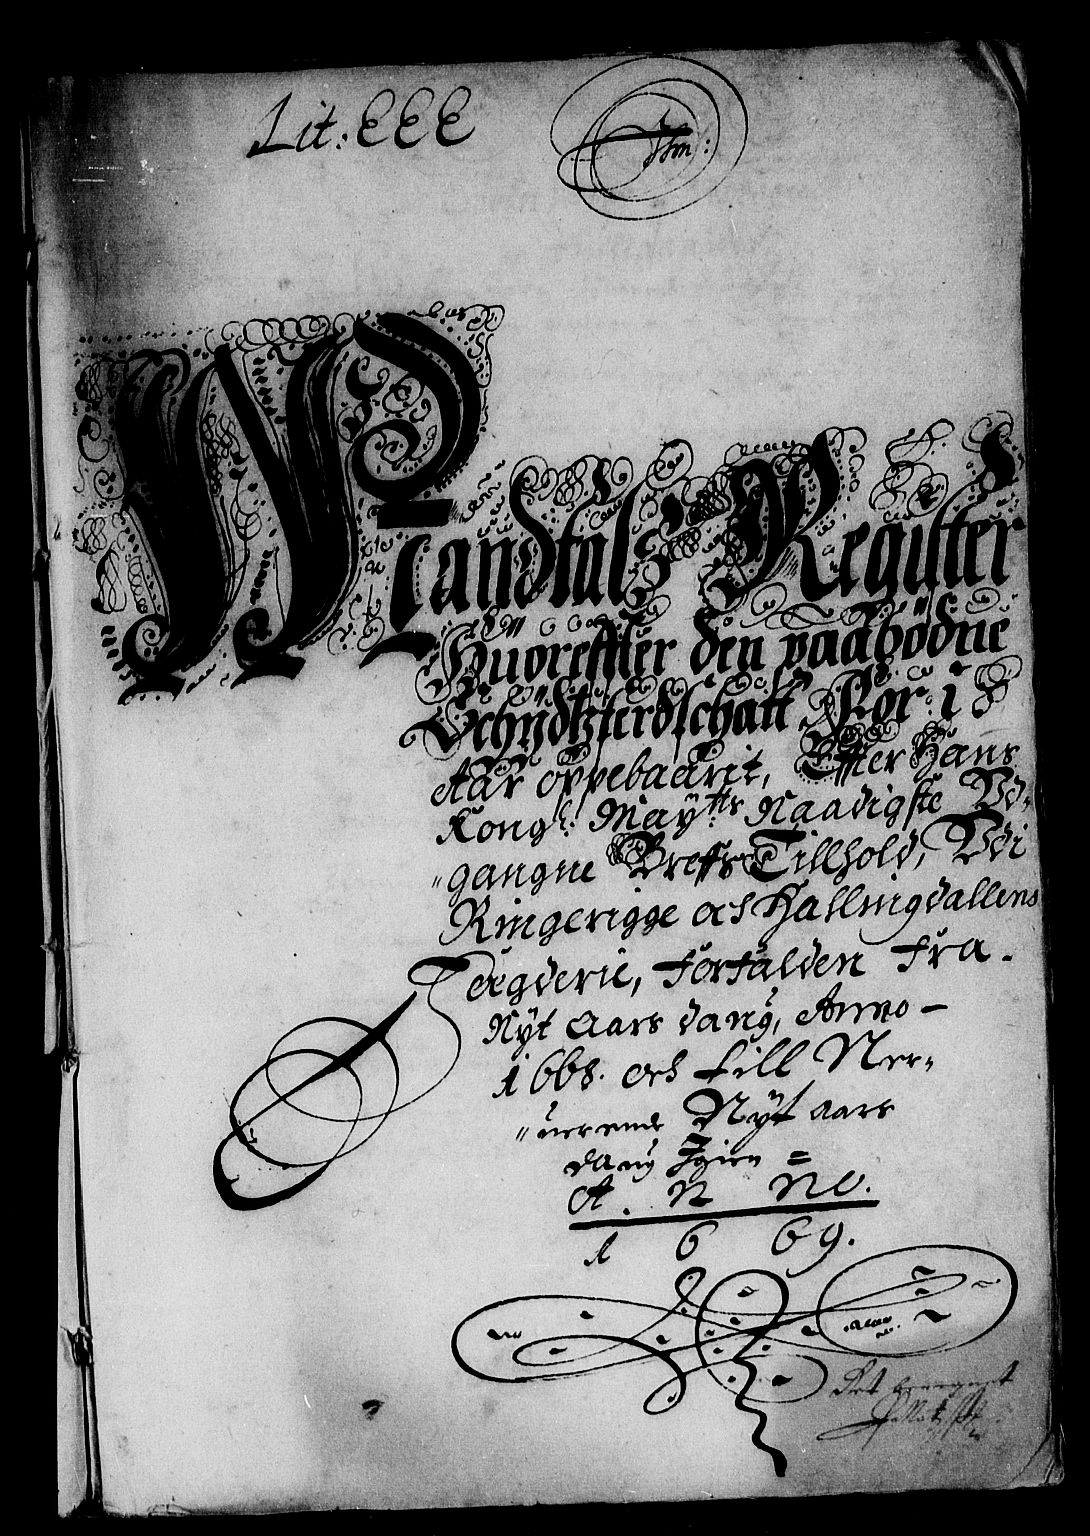 Lit: EEE
Mandtals Register
Huoreffter den paabødne
Schydtzferdschatt For i
Aar oppebaarit, Effter Hans
Kongl: Maytts Naadigste Vd-
gangne Breffs Tillhold, Vdi
Ringerigge och Hallingdallens
Fogderie, forfalden fra
Nyt Aars dang, Anno -
1668. och till Ner-
uerende Nyt aars
dang Igien =
A. N NO.
1 6 69.